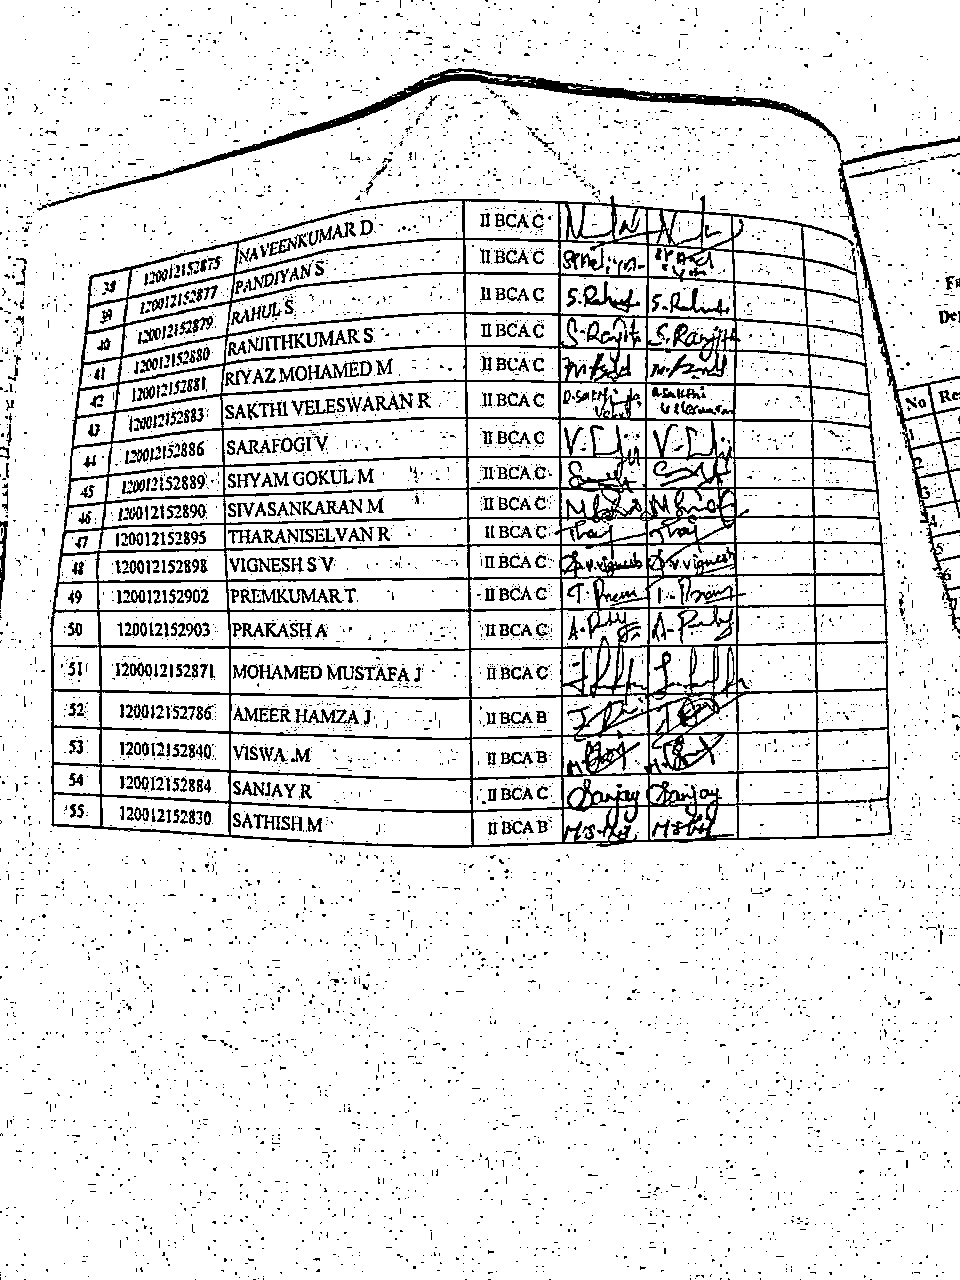 38 120012152875 NAVEENKUMAR D II BCA C
39 120012152877 PANDIYAN S II BCA C
40 120012152879 RAHUL S II BCA C S. Rahul S. Rahul
41 120012152880 RANJITHKUMAR S II BCA C S. Ranjith S. Ranjith
42 120012152881 RIYAZ MOHAMED M II BCA C
43 120012152883 SAKTHI VELESWARAN R II BCA C
44 120012152886 SARAFOGI V II BCA C
45 120012152889 SHYAM GOKUL M II BCA C
46 120012152890 SIVASANKARAN M II BCA C
47 120012152895 THARANISELVAN R II BCA C
48 120012152898 VIGNESH S V II BCA C S.V. Vignesh S.V. Vignesh
49 120012152902 PREMKUMAR T II BCA C T. Prem
50 120012152903 PRAKASH A II BCA C
51 1200012152871 MOHAMED MUSTAFA J II BCA C
52 120012152786 AMEER HAMZA J II BCA B
53 120012152840 VISWA .M II BCA B
54 120012152884 SANJAY R II BCA C Sanjay Sanjay
55 120012152830 SATHISH M II BCA B
No Re